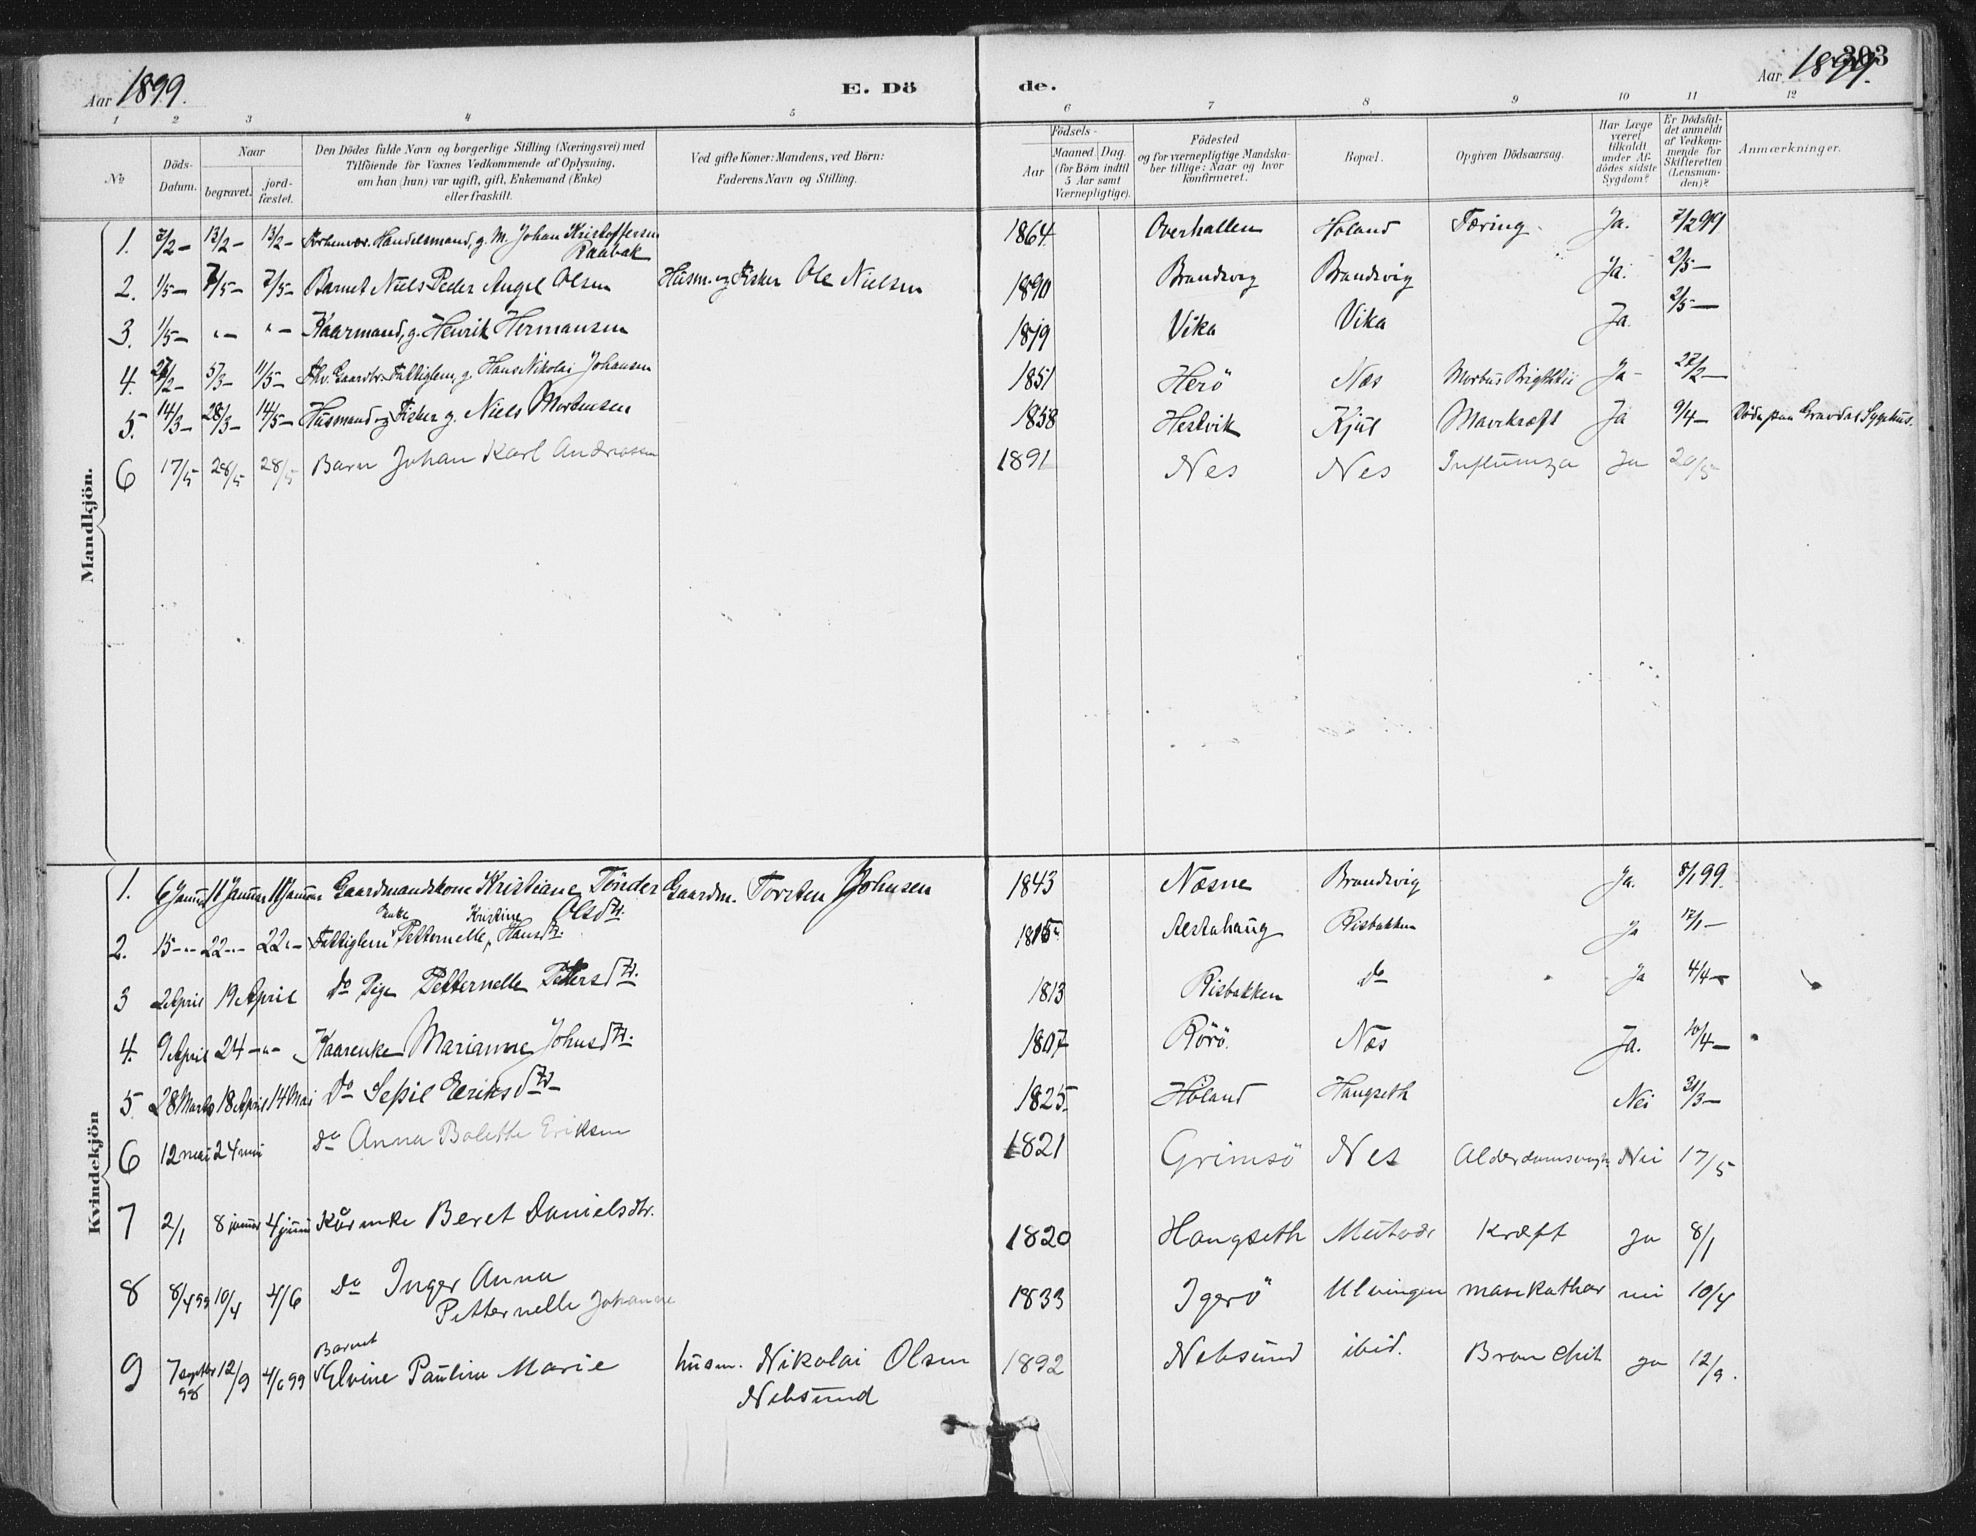 303
Aar 1899. E. Dö de. Aar 1899.
1 2 3 4 5 6 7 8 9 10 11 12
No
Döds-Datum.
Naar
begravet.
jord-fæstet.
Den Dödes fulde Navn og borgerlige Stilling (Næringsvei) med
Tilföiende for Voxnes Vedkommende af Oplysning,
om han (hun) var ugift, gift, Enkemand (Enke)
eller fraskilt.
Ved gifte Koner: Mandens, ved Börn:
Faderens Navn og Stilling.
Födsels-
Aar
Maaned. Dag.
(for Börn indtil
5 Aar samt
Værnepligtige).
Födested
og for værnepligtige Mandska-
ber tillige: Naar og hvor
konfirmeret.
Bopæl.
Opgiven Dödsaarsag.
Har Læge
været
tilkaldt
under Af-
dödes sidste
Sygdom?
Er Dödsfal-
det anmeldt
af Vedkom-
mende for
Skifteretten
(Lensman-
den)?
Anmærkninger.
Mandkjön.
1. 7/2 – 13/2 – 13/2 – Handelsmand, g. M. Johan Kristoffersen Raabak 1864 Overhallen Höland Tæring Ja. 7/2 99
2. 1/5 – 7/5 – 7/5 – Barnet Niels Peder Angel Olsen Husm. og Fisker Ole Nielsen 1890 Brandsvig Brandsvig Ja. 2/5 –
3. 1/5 – " – " – Kaarmand, g. Henrik Hermansen 1819 Vika Vika Ja. 2/5 –
4. 26/2 – 5/3 – 11/5 – Fattiglem, g. Hans Nikolai Johansen 1851 Herö Næs Morbus Brigthii Ja – 27/2 –
5. 14/3 – 28/3 – 14/5 – Husmand og Fisker g. Niels Mortensen 1858 Hestvik Kjul Mavekræft Ja 9/4 – Döde paa Gravdal Sygehus.
6 17/5 28/5 28/5 Barn Johan Karl Andreasen 1891 Nes Nes Influenza Ja 20/5
Kvindekjön
1. 6 Januar 11 Januar 11 Januar Gaardmandskone Kristiane Tönder Olsdtr. Gaardm. Torsten Johnsen 1843 Næsne Brandsvig Ja. 8/1 99
2. 15 – " – 22 – " – 22 " – Fattiglem Enke Petternelle Kristine Hansdtr. 1815 Alstahaug Risbakken Ja 17/1 –
3 2 April 19 April Do Pige Petternelle Petersdtr. 1813 Risbakken Do Ja 4/4 –
4. 9 April 24 – " – Kaarenke Marianne Johnsdtr. 1807 Rörö Næs Ja. 10/4 –
5. 28 Marts 18 April 14 Mai Do Sefsil Eriksdtr 1825 Höland Haugseth Nei 31/3 –
6 12 mai 24 mai Do Anna Bolette Eriksen 1821 Grimsö Nes Nei 17/5
7 2/1 8 januar 4 juni Kårenke Beret Danielsdtr. 1820 Haugseth Kræft Ja 8/1
8 8/4 99 10/4 4/6 Do Inger Anna Petternelle Johanne 1833 Igerö Ulvingen mavekathar nei 10/4
9 7 septbr 98 12/9 4/6 99 Barnet Elvine Pauline Marie husm. Nikolai Olsen Nebsund 1892 Nebsund ibid. Bronchit ja 12/9.